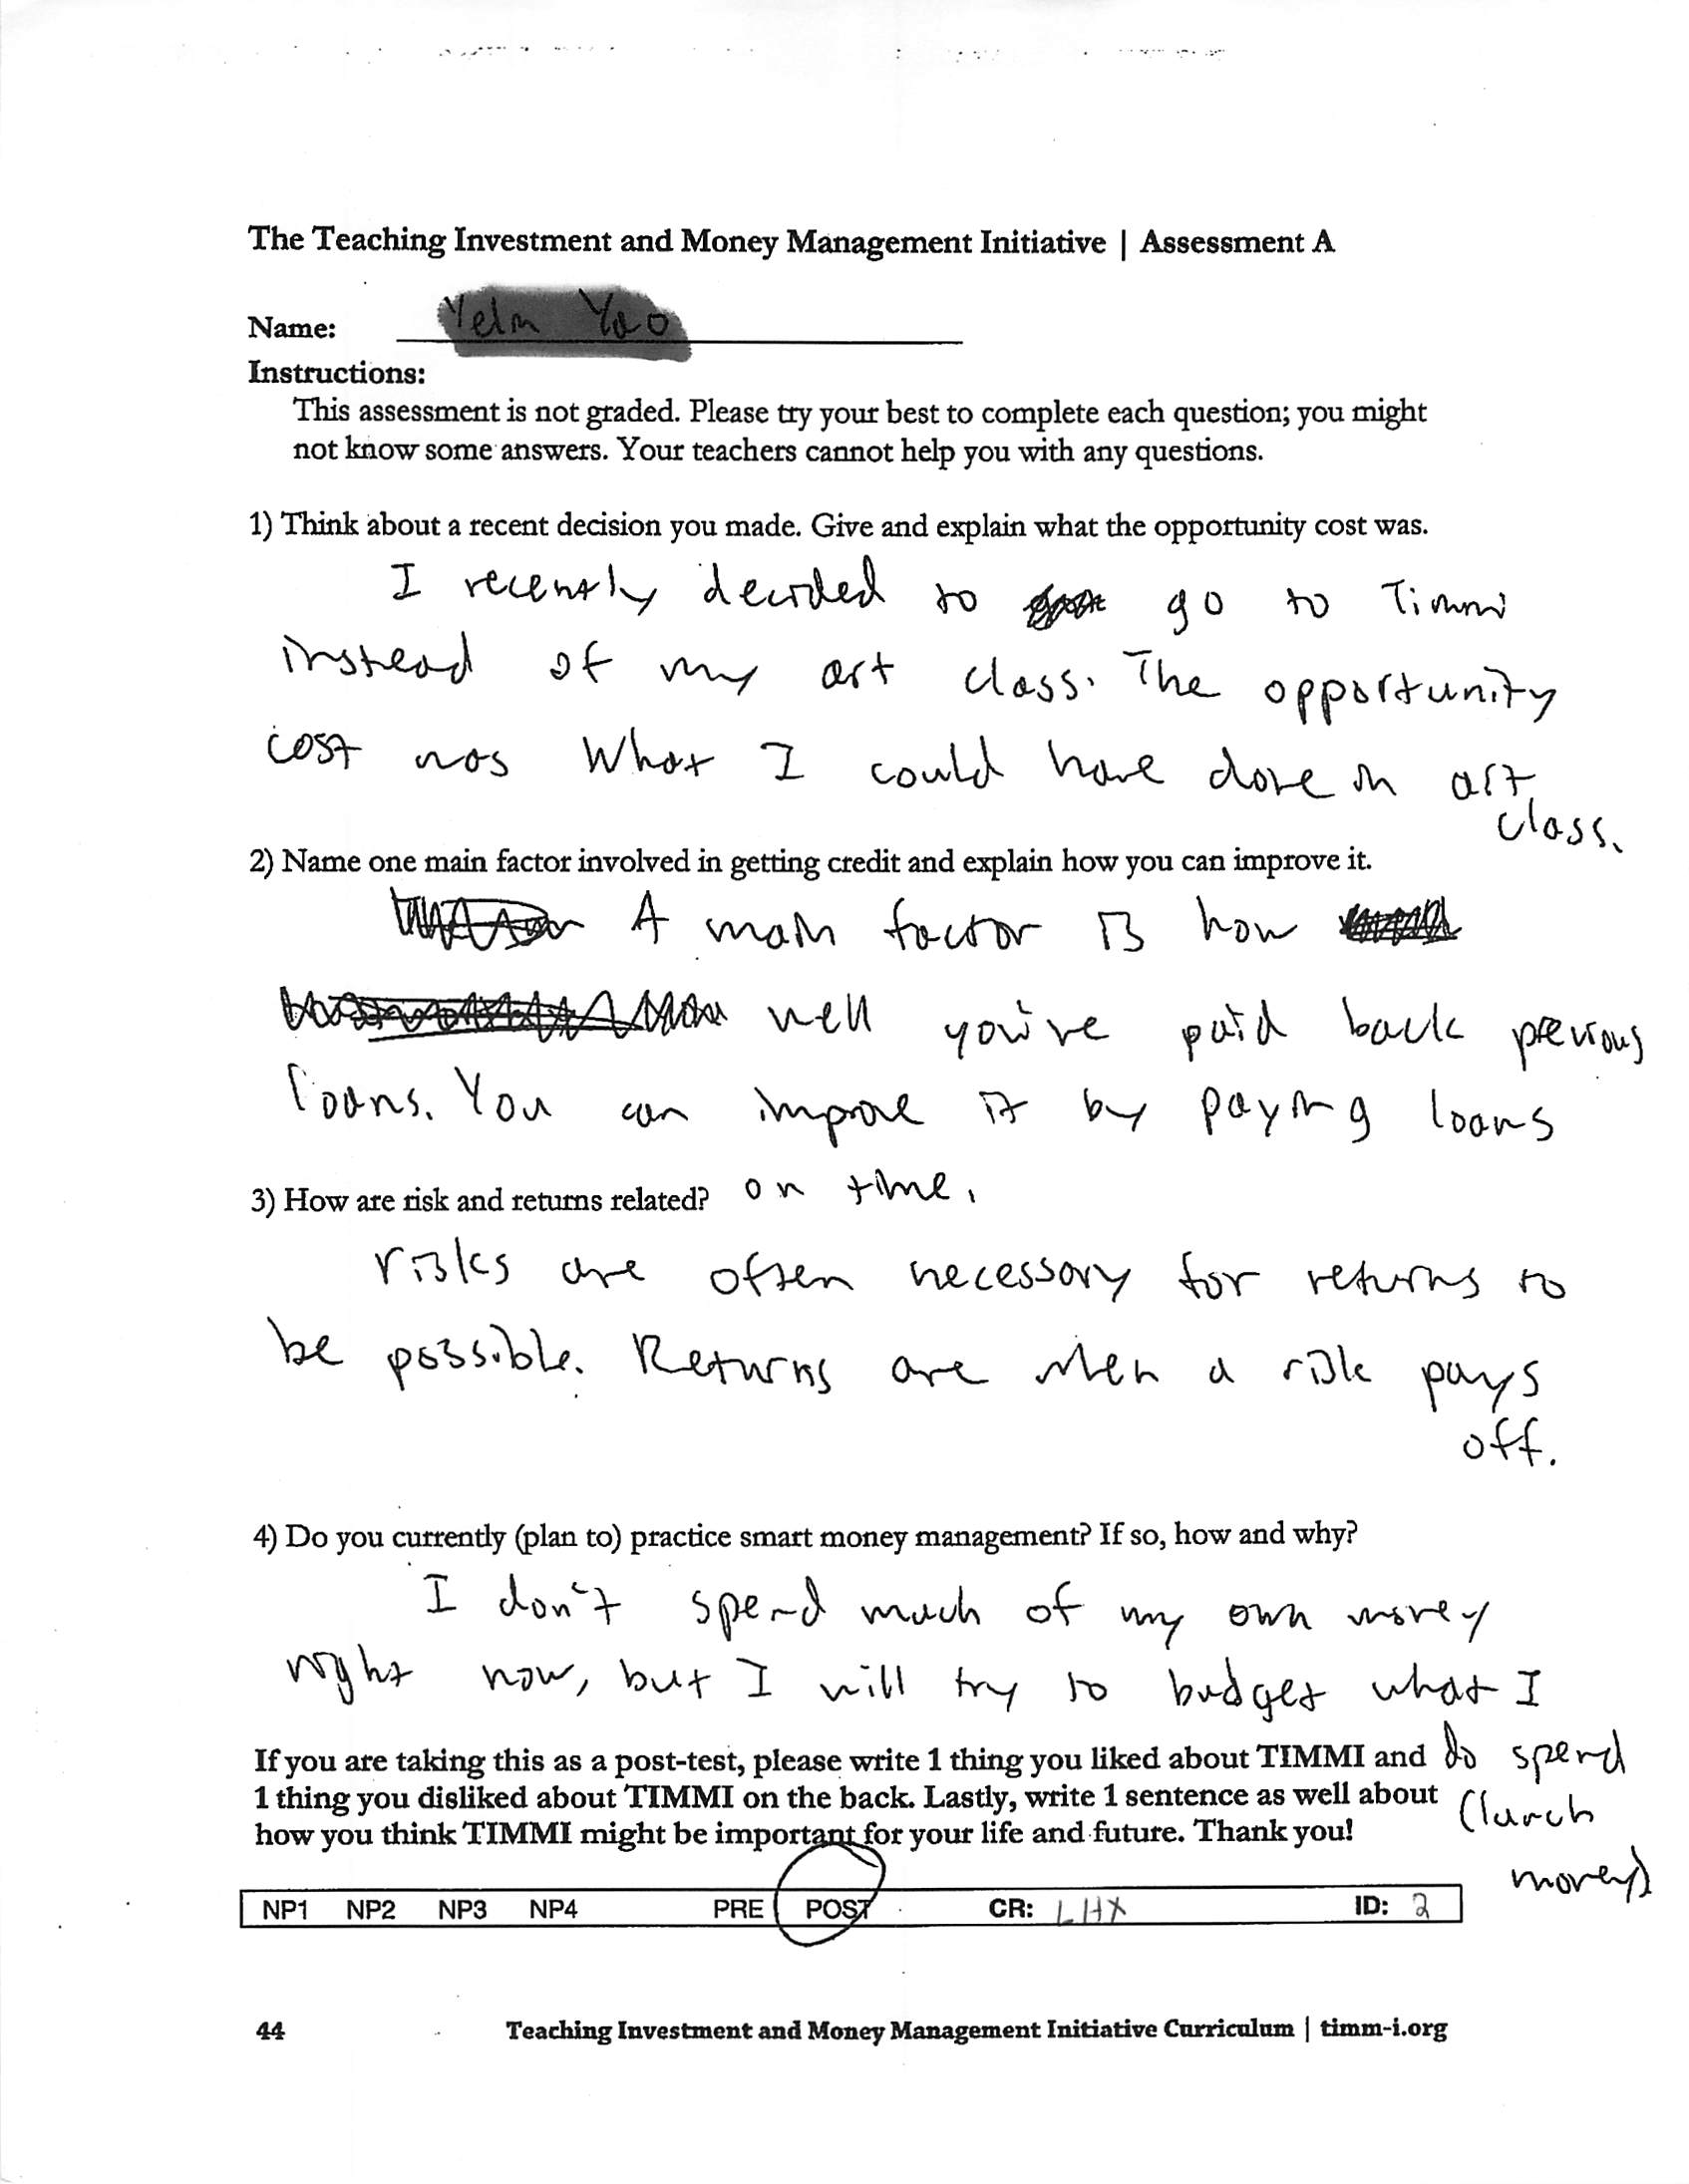 The Teaching Investment and Money Management Initiative | Assessment A
Name:
Instructions:
This assessment is not graded. Please try your best to complete each question; you might
not know some answers. Your teachers cannot help you with any questions.
1) Think about a recent decision you made. Give and explain what the opportunity cost was.
I recently decided to go to Timmi
instead of my art class. The opportunity
cost was what I could have done in art
class.
2) Name one main factor involved in getting credit and explain how you can improve it.
A main factor is how
well you've paid back previous
loans. You can improve it by paying loans
on time.
3) How are risk and returns related?
risks are often necessary for returns to
be possible. Returns are when a risk pays
off.
4) Do you currently (plan to) practice smart money management? If so, how and why?
I don't spend much of my own money
right now, but I will try to budget what I
do spend
(lunch
money)
If you are taking this as a post-test, please write 1 thing you liked about TIMMI and
1 thing you disliked about TIMMI on the back. Lastly, write 1 sentence as well about
how you think TIMMI might be important for your life and future. Thank you!
NP1 NP2 NP3 NP4 PRE POST CR: LHX ID: 2
44 Teaching Investment and Money Management Initiative Curriculum | timm-i.org